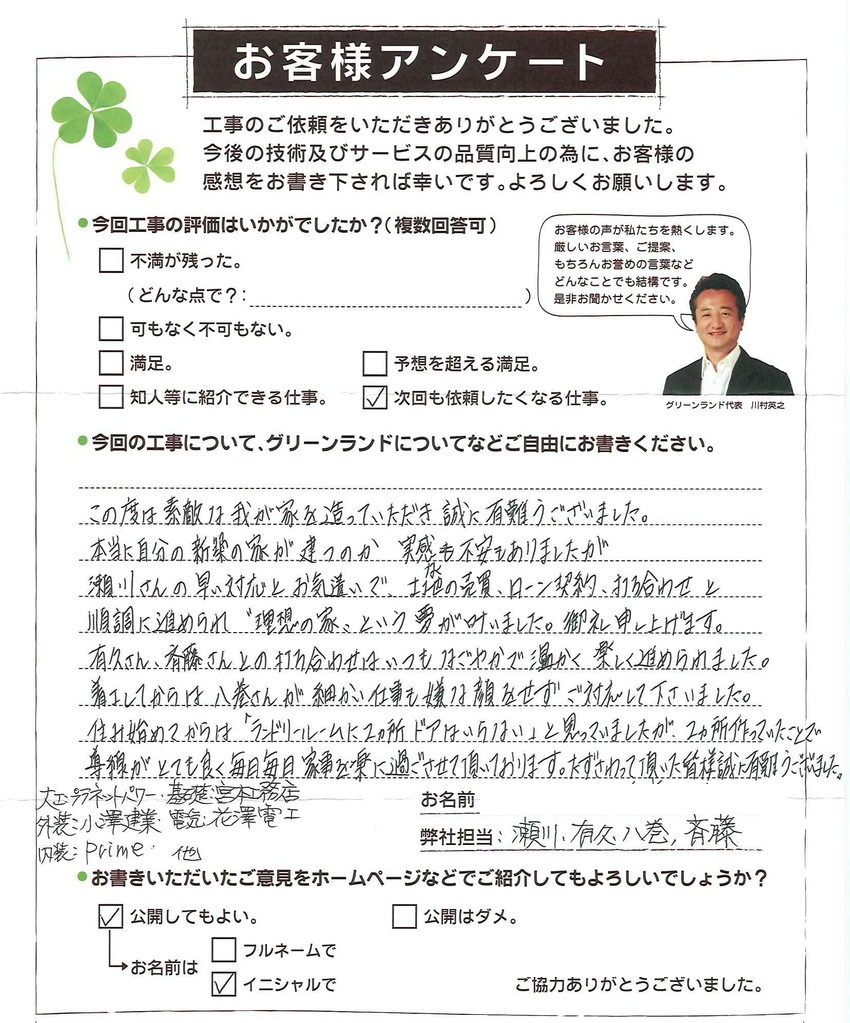 お客様アンケート
工事のご依頼をいただきありがとうございました。
今後の技術及びサービスの品質向上の為に、お客様の
感想をお書き下されば幸いです。よろしくお願いします。
●今回工事の評価はいかがでしたか？（複数回答可）
お客様の声が私たちを熱くします。
厳しいお言葉、ご提案、
もちろんお誉めの言葉など
どんなことでも結構です。
是非お聞かせください。
グリーンランド代表 川村英之
不満が残った。
（どんな点で？：）
可もなく不可もない。
満足。 予想を超える満足。
知人等に紹介できる仕事。 ✓次回も依頼したくなる仕事。
●今回の工事について、グリーンランドについてなどご自由にお書きください。
この度は素敵な我が家を造っていただき誠に有難うございました。
本当に自分の新築の家が建つのか 実感も不安もありましたが
瀬川さんの早い対応とお気遣いで、土地の売買、ローン契約、打ち合わせと
順調に進められ〝理想の家〟という夢が叶いました。御礼申し上げます。
有久さん、斉藤さんとの打ち合わせはいつもなごやかで温かく楽しく進められました。
着工してからは八巻さんが細かい仕事も嫌な顔をせずご対応して下さいました。
住み始めてからは「ランドリールームに2カ所ドアはいらない」と思っていましたが、2カ所作っていたことで
導線がとても良く毎日毎日家事を楽に過ごさせて頂いております。たずさわって頂いた皆様誠に有難うございました。
大工:プラネットパワー・基礎:宮本工務店
外装:小澤建業・電気:花澤電工
内装:prime・ 他
お名前
弊社担当：瀬川、有久、八巻、斉藤
●お書きいただいたご意見をホームページなどでご紹介してもよろしいでしょうか？
✓公開してもよい。 公開はダメ。
お名前は フルネームで
✓イニシャルで
ご協力ありがとうございました。